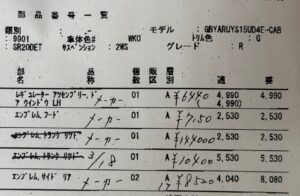 部品番号一覧
類別 モデル GBYARUYS15UD4E-CAB
: 9901 車体色# WK0 トリム色 : G
SR20DET サスペンション : 2WS グレード : R
部品名称 個数 販層 A
レギュレーター アッセンブリー, ド 01 A ¥6440 4,990 4,990
ア ウインドウ LH メーカー 4,990)
エンブレム, フード メーカー 01 A ¥7,150 2,530 2,530
エンブレム, トランク リッド 01 A ¥144000 2,530 2,530
エンブレム, トランク リッド 3/18 01 A ¥10400 5,530 5,530
エンブレム, サイド リア メーカー 02 A ¥8520 4,040 8,080